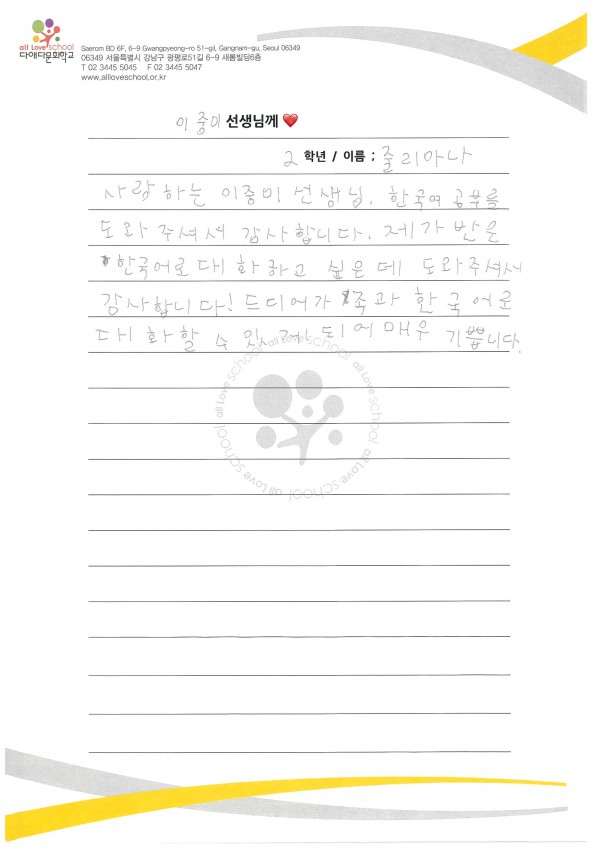 all Love school
다애다문화학교
Saerom BD 6F, 6-9 Gwangpyeong-ro 51-gil, Gangnam-gu, Seoul 06349
06349 서울특별시 강남구 광평로51길 6-9 새롬빌딩6층
T 02 3445 5045 F 02 3445 5047
www.allloveschool.or.kr
이중미 선생님께 ❤
2 학년 / 이름 : 줄리아나
사랑하는 이중미 선생님. 한국어 공부를
도와 주셔서 감사합니다. 제가 반은
한국어로 대화하고 싶은데 도와주셔서
감사합니다! 드디어 가족과 한국어로
대화할 수 있게 되어 매우 기쁩니다.
all Love school all Love school all Love school all Love school